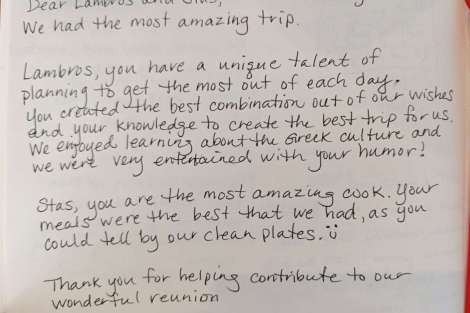 Dear Lambros and Stas,
We had the most amazing trip.
Lambros, you have a unique talent of
planning to get the most out of each day.
You created the best combination out of our wishes
and your knowledge to create the best trip for us.
We enjoyed learning about the Greek culture and
we were very entertained with your humor!
Stas, you are the most amazing cook. Your
meals were the best that we had, as you
could tell by our clean plates. ü
Thank you for helping contribute to our
wonderful reunion